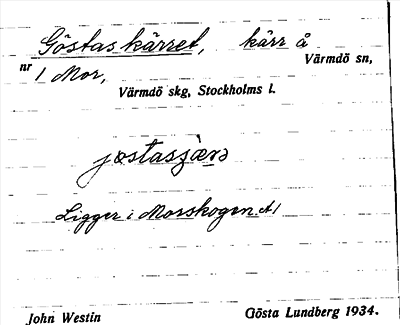 Göstas kärret, kärr å
Värmdö sn,
nr 1 Mor,
Värmdö skg, Stockholms l.
Ligger i Morskogen
John Westin
Gösta Lundberg 1934.